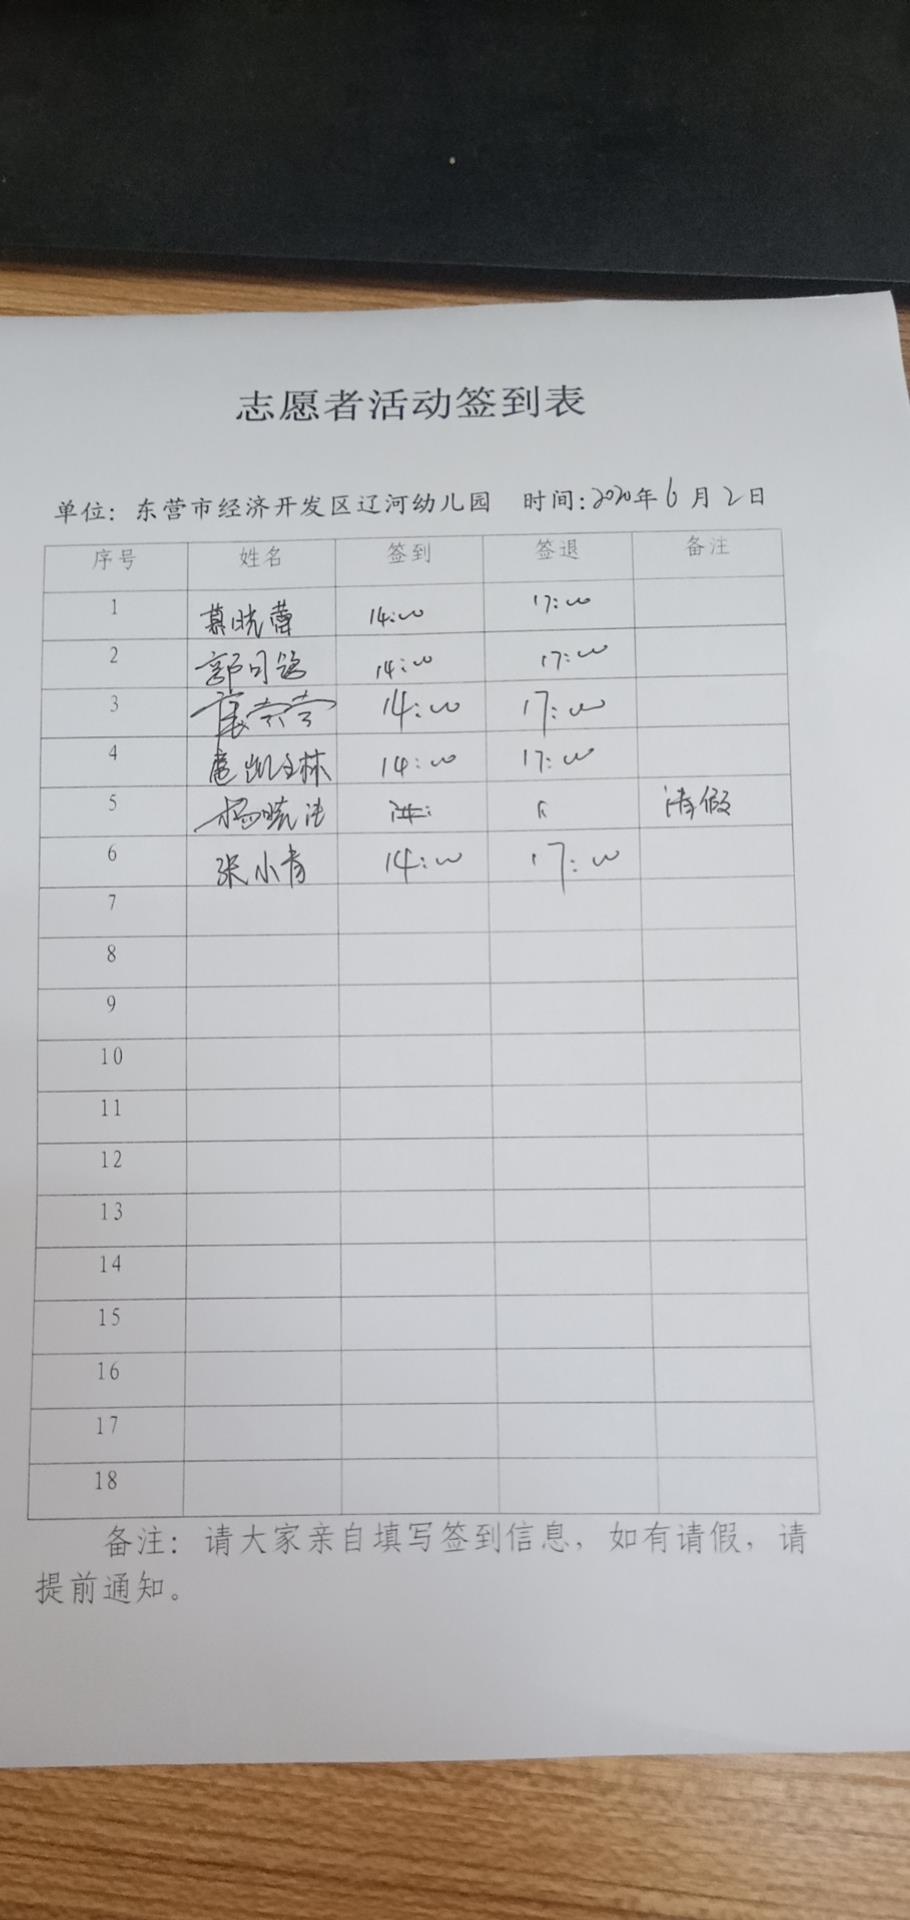 志愿者活动签到表
单位：东营市经济开发区辽河幼儿园 时间：2020年6月2日
序号 姓名 签到 签退 备注
1 慕晓蕾 14:00 17:00
2 14:00 17:00
3 14:00 17:00
4 14:00 17:00
5 杨晓洁 请假
6 张小青 14:00 17:00
7
8
9
10
11
12
13
14
15
16
17
18
备注：请大家亲自填写签到信息，如有请假，请
提前通知。